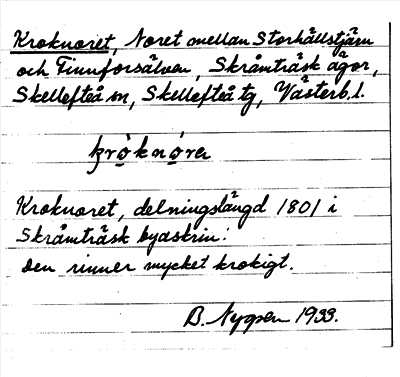 Kroknoret, Noret mellan Storhällstjärn
och Finnforsälven, Skråmträsk ägor,
Skellefteå sn, Skellefteå tg, Västerb. l.
krọ̀knọrɐ
Kroknoret, delningslängd 1801 i
Skråmträsk byaskrin.
Den rinner mycket krokigt.
B. Nygren 1933.